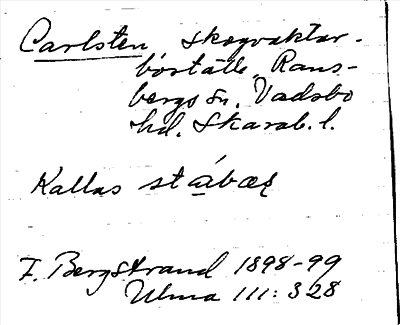 Carlsten, skogvaktar-
boställe, Rans-
bergs sn, Vadsbo
hd. Skarab. l.
Kallas stábæ
F. Bergstrand 1898-99
Ulma 111:328